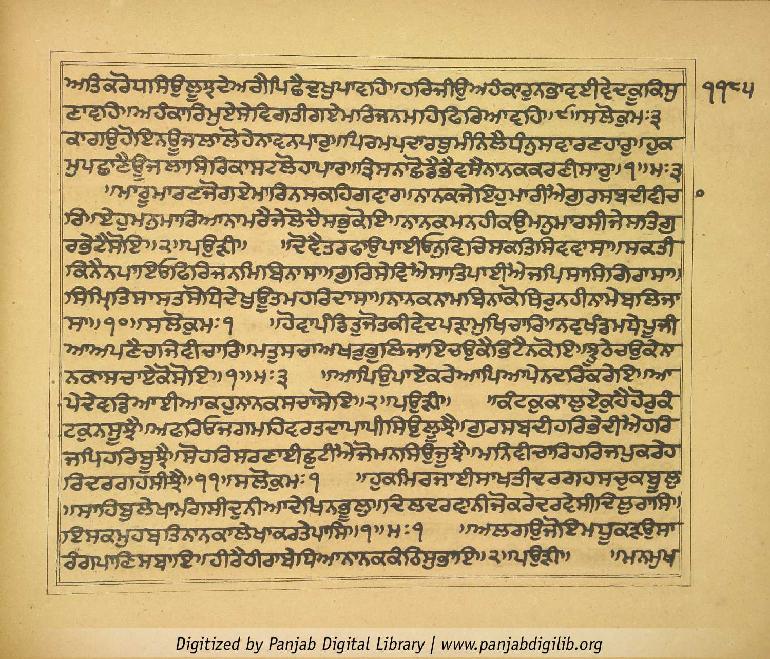 ਅਤਿਕਰੋਧਸਿਉਲੂਝਦੇਅਗੈਪਿਛੈਦੁਖੁਪਾਵਹਿ॥ਹਰਿਜੀਉਅਹੰਕਾਰੁਨਭਾਵਈਵੇਦਕੂਕਿਸੁ ੧੧੯੫
ਣਾਵਹਿ॥ਅਹੰਕਾਰਿਮੁਏਸੇਵਿਗਤੀਗਏਮਰਿਜਨਮਹਿਫਿਰਿਆਵਹਿ॥੯॥ਸਲੋਕੁਮਃ੩
ਕਾਗਉਹੋਇਨਊਜਲਾਲੋਹੇਨਾਵਨਪਾਰੁ॥ਪਿਰਮਪਦਾਰਥੁਮੰਨਿਲੈਧੰਨੁਸਵਾਰਣਹਾਰੁ॥ਹੁਕ
ਮੁਪਛਾਣੈਊਜਲਾਸਿਰਿਕਾਸਟਲੋਹਾਪਾਰਿ॥ਤ੍ਰਿਸਨਾਛੋਡੈਭੈਵਸੈਨਾਨਕਕਰਣੀਸਾਰੁ॥੧॥ਮਃ੩
॥ਮਾਰੂਮਾਰਣਜੋਗਏਮਾਰਿਨਸਕਹਿਗਵਾਰ॥ਨਾਨਕਜੇਇਹੁਮਾਰੀਐਗੁਰਸਬਦੀਵੀਚਾ
ਰਿ॥ਏਹੁਮਨੁਮਾਰਿਆਨਾਮਰੈਜੇਲੋਚੈਸਭੁਕੋਇ॥ਨਾਨਕਮਨਹੀਕਉਮਨੁਮਾਰਸੀਜੇਸਤਿਗੁ
ਰਭੇਟੈਸੋਇ॥੨॥ਪਉੜੀ॥ ॥ਦੋਵੈਤਰਫਾਉਪਾਈਓਨੁਵਿਚਿਸਕਤਿਸਿਵਵਾਸਾ॥ਸਕਤੀ
ਕਿਨੈਨਪਾਇਓਫਿਰਿਜਨਮਿਬਿਨਾਸਾ॥ਗੁਰਿਸੇਵਿਐਸਾਤਿਪਾਈਐਜਪਿਸਾਸਿਗਿਰਾਸਾ॥
ਸਿਮ੍ਰਿਤਿਸਾਸਤਸੋਧਿਦੇਖੁਊਤਮਹਰਿਦਾਸਾ॥ਨਾਨਕਨਾਮਬਿਨਾਕੋਥਿਰੁਨਹੀਨਾਮੇਬਲਿਜਾ
ਸਾ॥੧੦॥ਸਲੋਕੁਮਃ੧ ॥ਹੋਵਾਪੰਡਿਤੁਜੋਤਕੀਵੇਦਪੜਾਮੁਖਿਚਾਰਿ॥ਨਵਖੰਡਮਧੇਪੂਜੀ
ਆਅਪਣੈਚਜਿਵੀਚਾਰਿ॥ਮਤੁਸਚਾਅਖਰੁਭੁਲਿਜਾਇਚਉਕੈਭਿਟੈਨਕੋਇ॥ਝੂਠੇਚਉਕੇਨਾ
ਨਕਾਸਚਾਏਕੋਸੋਇ॥੧॥ਮਃ੩ ॥ਆਪਿਉਪਾਏਕਰੇਆਪਿਆਪੇਨਦਰਿਕਰੇਇ॥ਆ
ਪੇਦੇਵਡਿਆਈਆਕਹੁਨਾਨਕਸਚਾਸੋਇ॥੨॥ਪਉੜੀ॥ ॥ਕੰਟਕੁਕਾਲੁਏਕੁਹੈਹੋਰੁਕੰ
ਟਕੁਨਸੂਝੈ॥ਅਫਰਿਓਜਗਮਹਿਵਰਤਦਾਪਾਪੀਸਿਉਲੂਝੈ॥ਗੁਰਸਬਦੀਹਰਿਭੇਦੀਐਹਰਿ
ਜਪਿਹਰਿਬੂਝੈ॥ਸੋਹਰਿਸਰਣਾਈਛੁਟੀਐਜੋਮਨਸਿਉਜੂਝੈ॥ਮਨਿਵੀਚਾਰਿਹਰਿਜਪੁਕਰੇਹ
ਰਿਦਰਗਹਸੀਝੈ॥੧੧॥ਸਲੋਕੁਮਃ੧ ॥ਹੁਕਮਿਰਜਾਈਸਾਖਤੀਦਰਗਹਸਚੁਕਬੂਲੁ
॥ਸਾਹਿਬੁਲੇਖਾਮੰਗਸੀਦੁਨੀਆਦੇਖਿਨਭੂਲੁ॥ਦਿਲਦਰਵਾਨੀਜੋਕਰੇਦਰਵੇਸੀਦਿਲੁਰਾਸਿ॥
ਇਸਕਮੁਹਬਤਿਨਾਨਕਾਲੇਖਾਕਰਤੇਪਾਸਿ॥੧॥ਮਃ੧ ॥ਅਲਗਉਜੋਇਮਧੂਕੜਉਸਾ
ਰੰਗਪਾਣਿਸਬਾਇ॥ਹੀਰੈਹੀਰਾਬੇਧਿਆਨਾਨਕਕੰਠਿਸੁਭਾਇ॥੨॥ਪਉੜੀ॥ ॥ਮਨਮੁਖ
Digitized by Panjab Digital Library | www.panjabdigilib.org